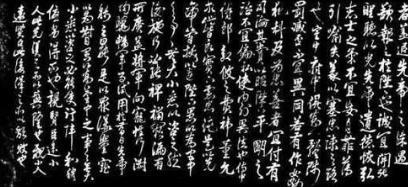 者蓋追先帝之殊遇欲
報之於陛下也誠宜開張
聖聽以光先帝遺德恢弘
志士之氣不宜妄自菲薄
引喻失義以塞忠諫之路
也宮中府中俱為一體陟
罰臧否不宜異同若有作奸
犯科及為忠善者宜付有
司論其刑賞以昭陛下平明之
治不宜偏私使內外異法也侍中
侍郎郭攸之費禕董允
等此皆良實志慮忠純是以先
帝簡拔以遺陛下愚以為宮中
之事事無大小悉以咨之然
後施行必能裨補闕漏有
所廣益將軍向寵性行淑
均曉暢軍事試用於昔日先帝
稱之曰能是以眾議舉寵
以為督愚以為營中之事事無大
小悉以咨之必能使行陣和穆
優劣得所也親賢臣遠小
人此先漢所以興隆也親小人
遠賢臣此後漢所以傾頹也